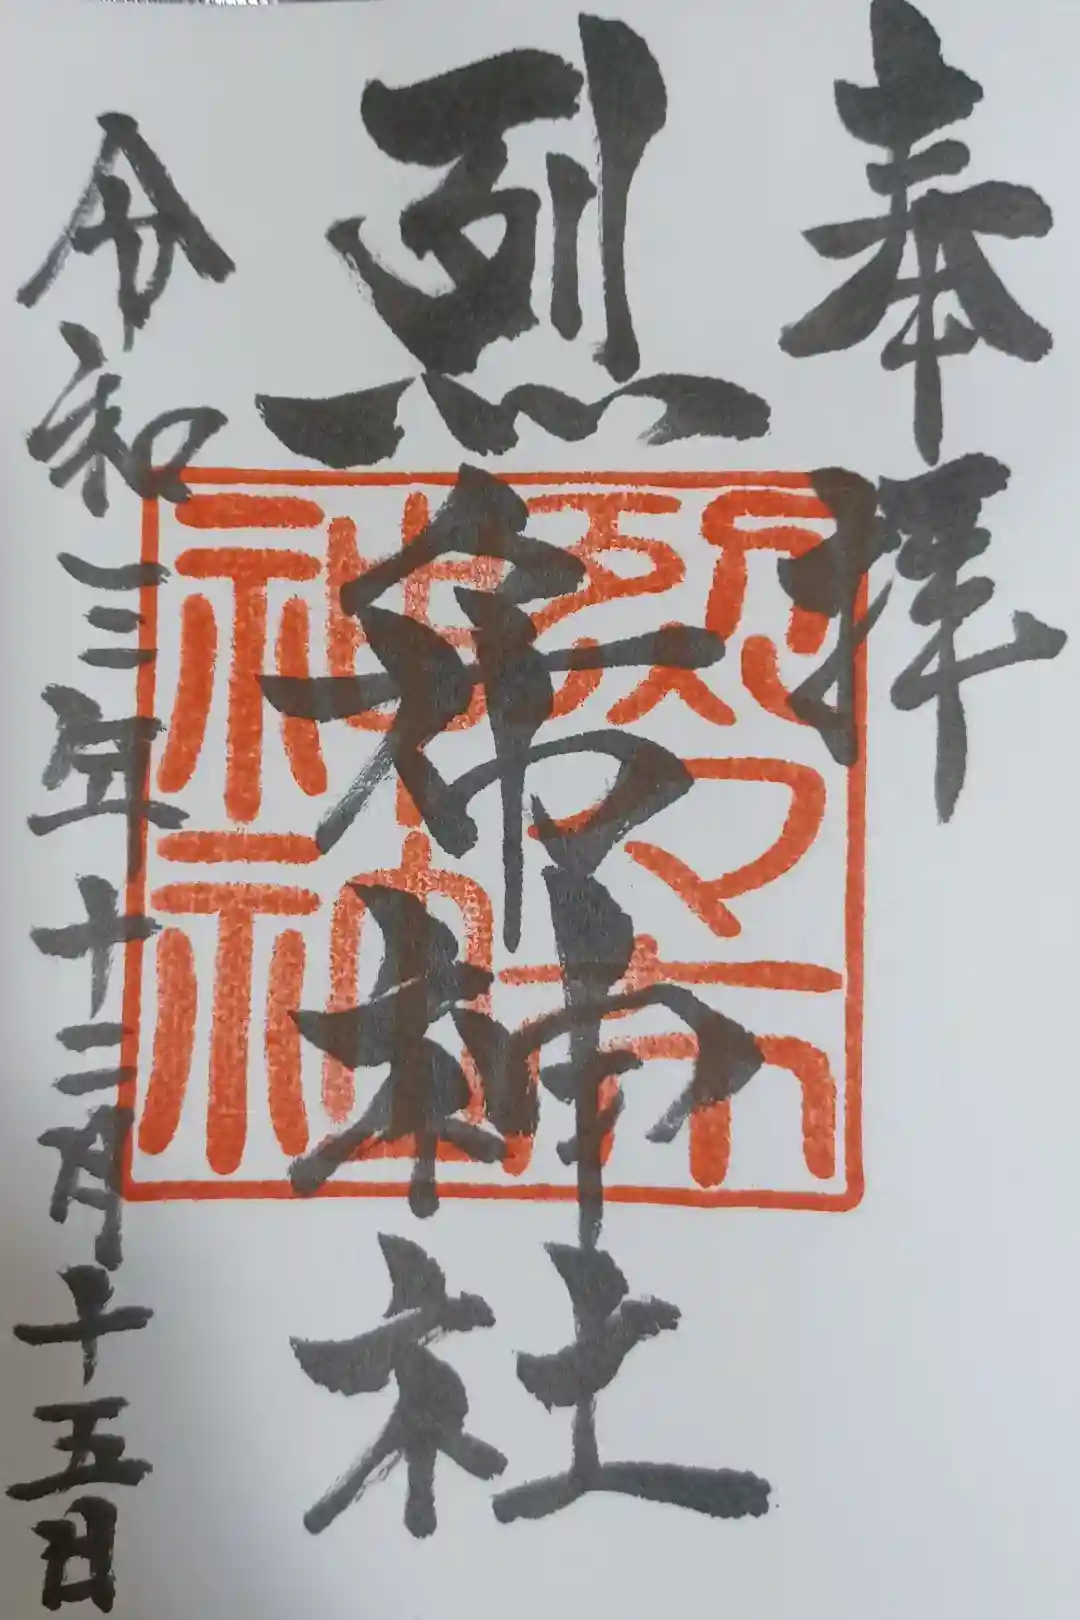 奉拝
烈々布神社
烈々布
神社
令和三年十二月十五日